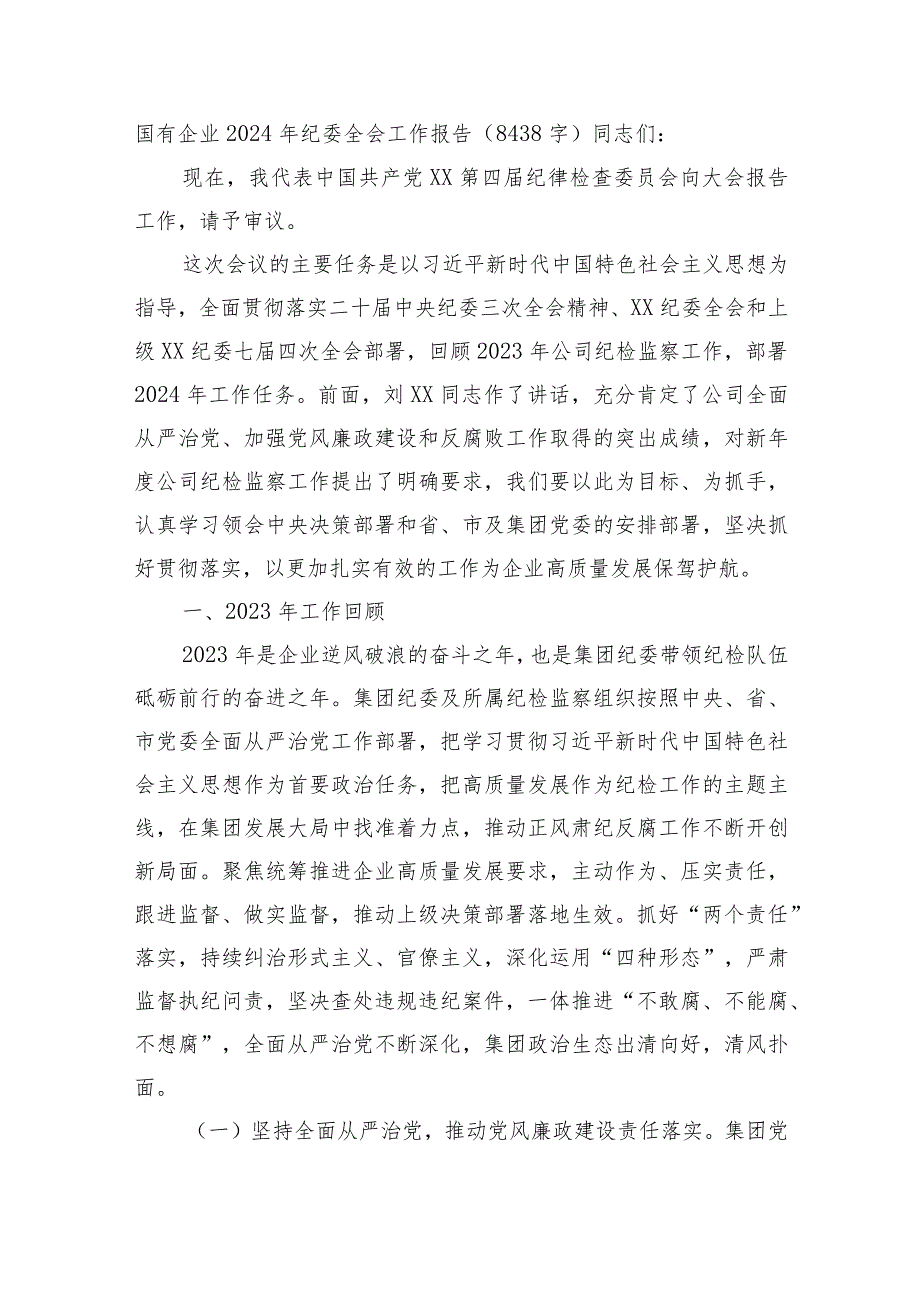 国有企业2024年纪委全会工作报告（8438字）同志们：
现在，我代表中国共产党XX第四届纪律检查委员会向大会报告
工作，请予审议。
这次会议的主要任务是以习近平新时代中国特色社会主义思想为
指导，全面贯彻落实二十届中央纪委三次全会精神、XX纪委全会和上
级XX纪委七届四次全会部署，回顾2023年公司纪检监察工作，部署
2024年工作任务。前面，刘XX同志作了讲话，充分肯定了公司全面
从严治党、加强党风廉政建设和反腐败工作取得的突出成绩，对新年
度公司纪检监察工作提出了明确要求，我们要以此为目标、为抓手，
认真学习领会中央决策部署和省、市及集团党委的安排部署，坚决抓
好贯彻落实，以更加扎实有效的工作为企业高质量发展保驾护航。
一、2023年工作回顾
2023年是企业逆风破浪的奋斗之年，也是集团纪委带领纪检队伍
砥砺前行的奋进之年。集团纪委及所属纪检监察组织按照中央、省、
市党委全面从严治党工作部署，把学习贯彻习近平新时代中国特色社
会主义思想作为首要政治任务，把高质量发展作为纪检工作的主题主
线，在集团发展大局中找准着力点，推动正风肃纪反腐工作不断开创
新局面。聚焦统筹推进企业高质量发展要求，主动作为、压实责任，
跟进监督、做实监督，推动上级决策部署落地生效。抓好“两个责任”
落实，持续纠治形式主义、官僚主义，深化运用“四种形态”，严肃
监督执纪问责，坚决查处违规违纪案件，一体推进“不敢腐、不能腐、
不想腐”，全面从严治党不断深化，集团政治生态出清向好，清风扑
面。
（一）坚持全面从严治党，推动党风廉政建设责任落实。集团党